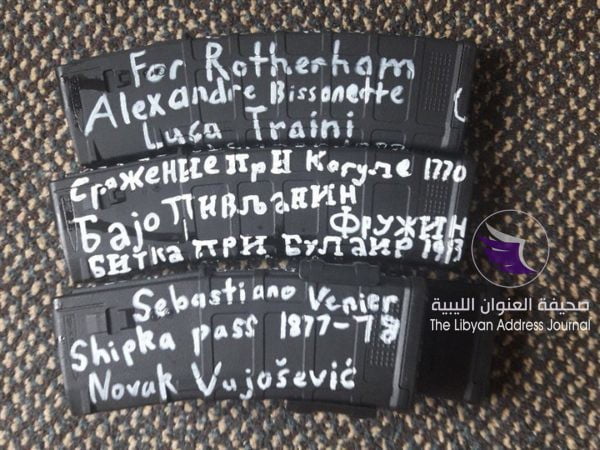 For Rotherham
Alexandre Bissonette
Luca Traini
Сражение при Кагуле 1770
Бајо Пивљанин
Фружин
Битка при Булаир 1913
Sebastiano Venier
Shipka pass 1877-78
Novak Vujošević
صحيفة العنوان الليبية
The Libyan Address Journal